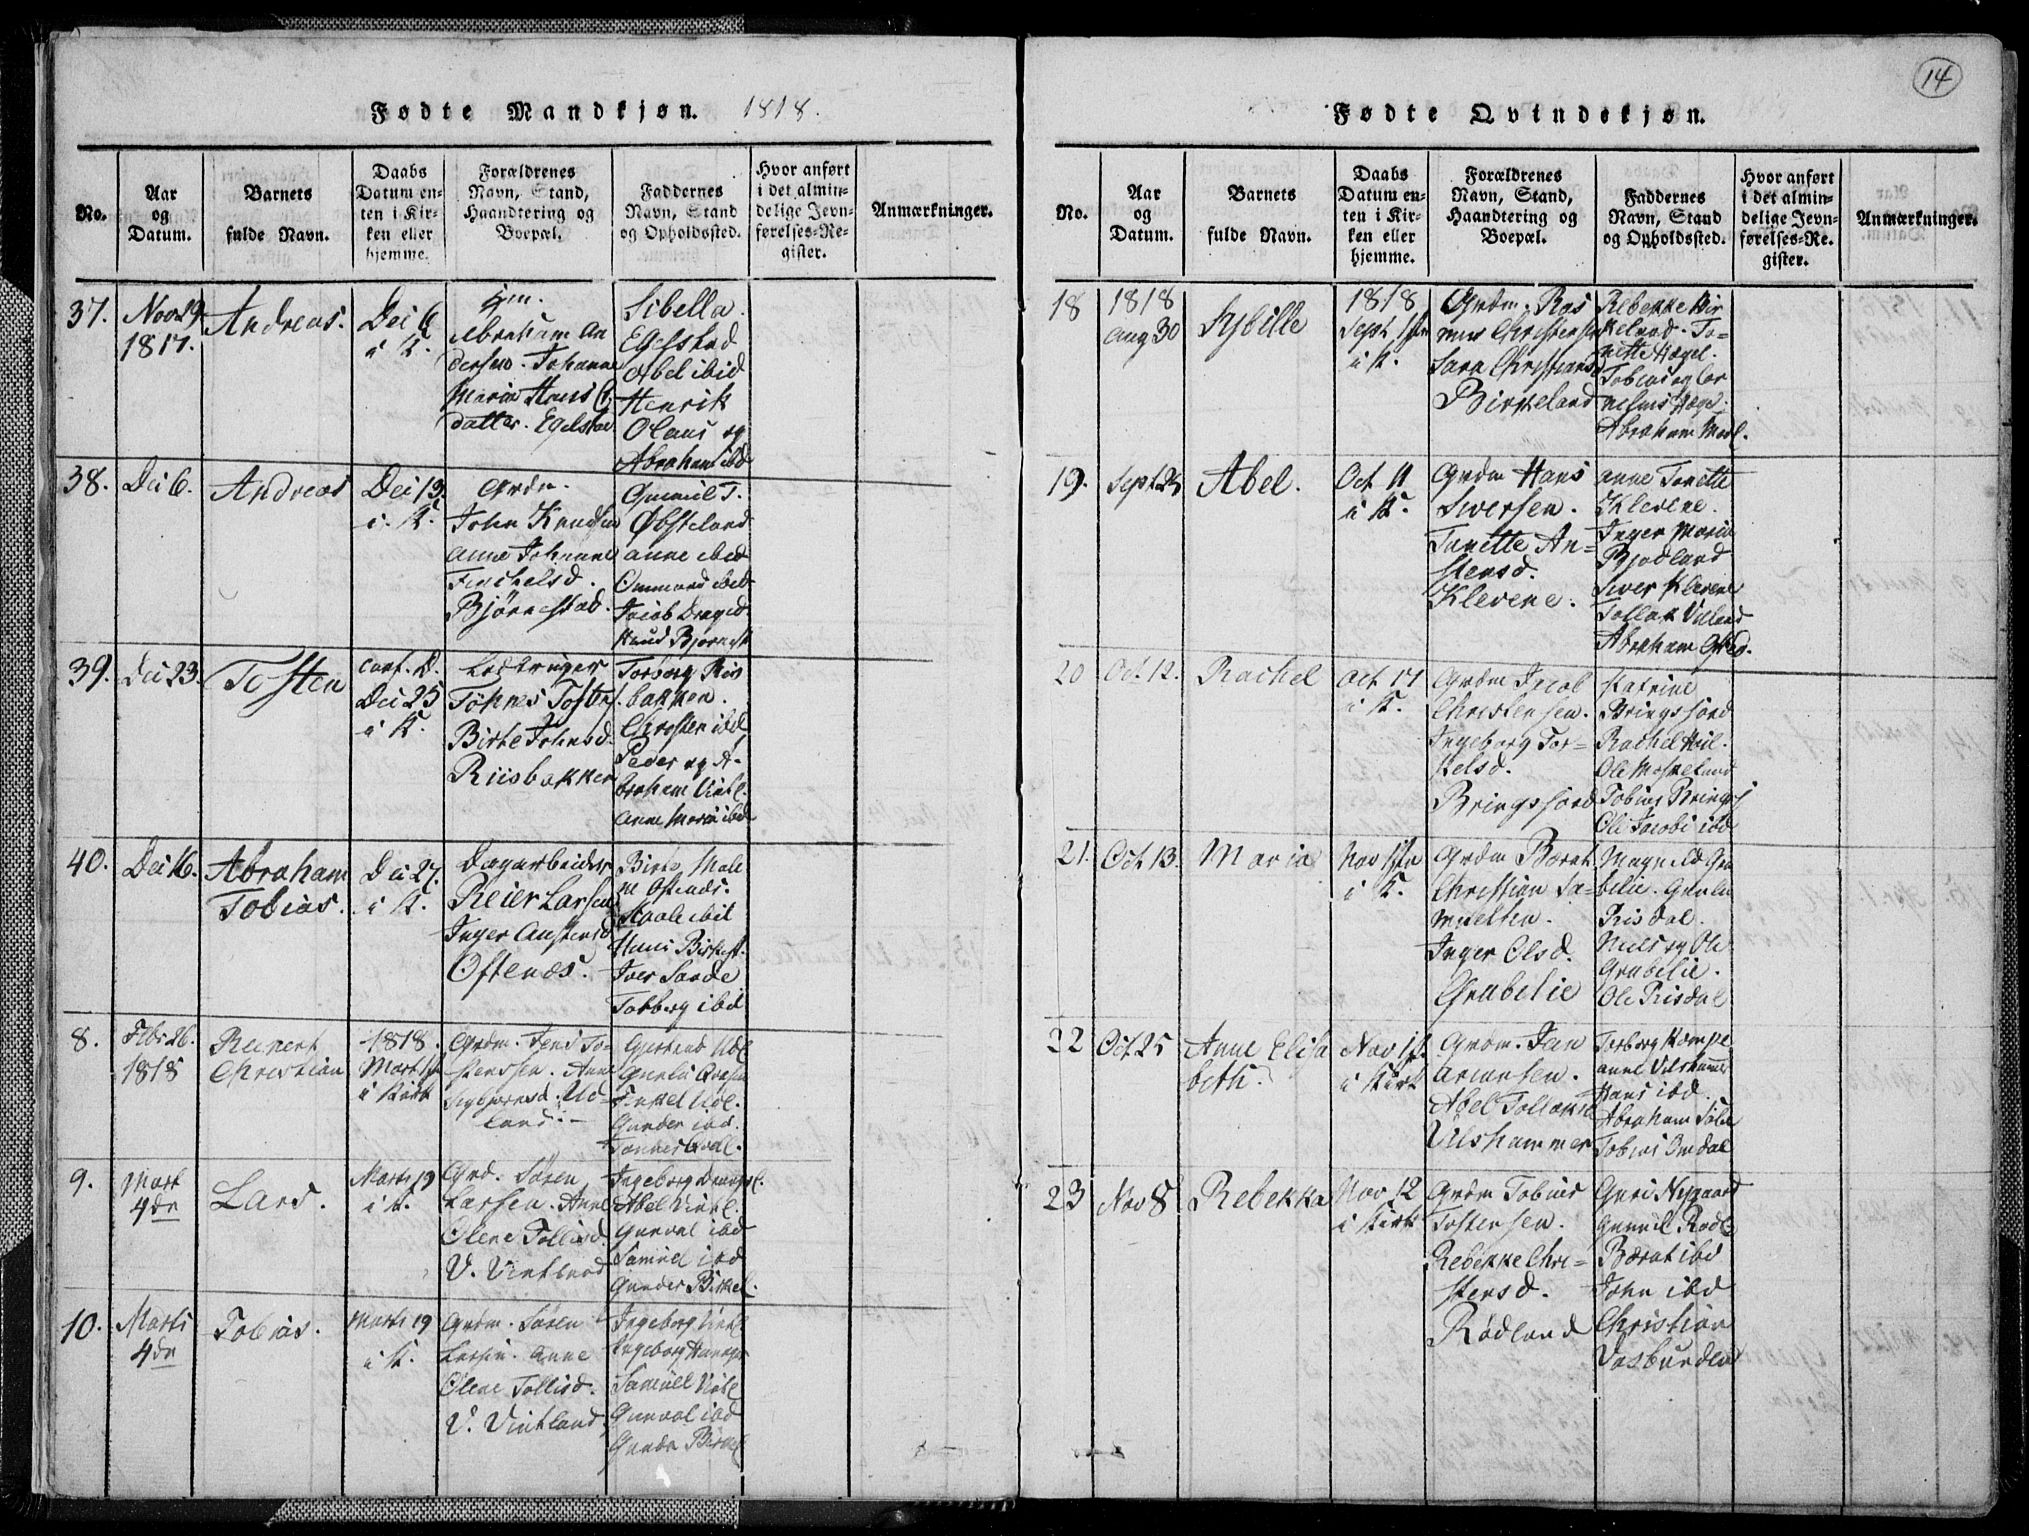 14
Fødte Mandkjøn. 1818.
No.
Aar
og
Datum.
Barnets
fulde Navn.
Daabs
Datum en-
ten i Kir-
ken eller
hjemme.
Forældrenes
Navn, Stand,
Haandtering og
Boepæl.
Faddernes
Navn, Stand
og Opholdssted.
Hvor anført
i det almin-
delige Jevn-
førelses-Re-
gister.
Anmærkninger.
37.
Nov 29
1817.
Andreas.
Dec 6
i K.
Abraham An
dersen. Johanne
Maria Hans
datter. Egelstad
Sibella
Egelstad
Abel ibid
Henrik
Olaus og
Abraham ibd
38.
Dec 6.
Andreas
Dec 13.
i K.
Grdm.
John Knudsen
Anne Johanne
Bjørnestad.
Gunnild T.
Øbsteland
Anne ibid
Ommund ibid
Jacob
Knud Bjørnest
39.
Dec 23.
Tosten
conf. D.
Dec 25
i K.
Tønnes Tosters
Birte Johnsd.
Riisbakken
Torborg Riis
bakken.
Christen ibd
Peder og A-
braham
Anne Maria ibd
40.
Dec 16.
Abraham
Tobias.
Dec 27.
i K.
Dagarbeider
Reier Larsen
Inger Austensd
Oftenæs.
Birte Male
ne Oftenæs.
ibid
Hans Birkest.
Iver Sande
Torborg ibid
8.
Febr 26.
1818
Reinert
Christian
1818.
Mart
i Kirk
Grdm. To-
stensen. Anne
Ud-
land
Gunder ibd.
9.
Mart
4de
Lars.
Marti 19
i K.
Grd. Søren
Larsen. Anne
Olene Tollisd.
V. Vintland
Ingeborg
Abel Vintl.
Gunval ibd
Samuel ibd
Gunder Birkel.
10.
Marti
4de
Tobias.
Marti 19
i K.
Grdm. Søren
Larsen. Anne
Olene Tollisd.
V. Vintland
Ingeborg Vintl
Ingeborg
Samuel Vintl
Gunval ibd
Birkel
Fødte Qvindekjøn.
No.
Aar
og
Datum.
Barnets
fulde Navn.
Daabs
Datum en-
ten i Kir-
ken eller
hjemme.
Forældrenes
Navn, Stand,
Haandtering og
Boepæl.
Faddernes
Navn, Stand
og Opholdssted.
Hvor anført
i det almin-
delige Jevn-
førelses-Re-
gister.
Anmærkninger.
18
1818
Aug 30
Sybille
1818
Sept
i K.
Grdm. Ras
mus Christensen
Sara Christiansd
Birkeland
Rebekke Bir
keland. To-
nette Hægel.
Tobias og Cor
nelius Hægel
Abraham
19.
Sept 25
Abel.
Oct 11
i K.
Grdm Hans
Sversen.
Tonette An-
stensd.
Klevene.
Anne Tonette
Klevene.
Inger Maria
Bjodland
Sver Klevene
Tollak
Abraham
20
Oct. 12.
Rachel
Oct 17
i K.
Grdm Jacob
Christensen.
Ingeborg Tor-
kelsd.
Bringsjord
Katrine
Bringsjord
Rachel
Ole Moskeland
Tobias Bringsj
Ole Jacob ibd
21.
Oct 13.
Maria
Nov 1ste
i K.
Grdm Berat
Christian Sa-
muelsen.
Inger Olsd.
Grubelie
Magnild Gru
belie. Gunild
Risdal.
Niels og Ole
Grubelie.
Ole Risdal
22
Oct 25
Anne Elisa
beth.
Nov 1st
i Kirk
Grdm. Jan
Abel Tollaksd
Uleshammer
Torborg
Anne Uleshammer
Hans ibd.
Abraham
Tobias Omdal
23
Nov 8
Rebekka
Nov 12
i Kirk
Grdm Tobias
Tostensen.
Rebekke Chri-
stensd.
Rødland
Guri Nygaard
Gunnild Rødl
Berat ibd
John ibd
Christian